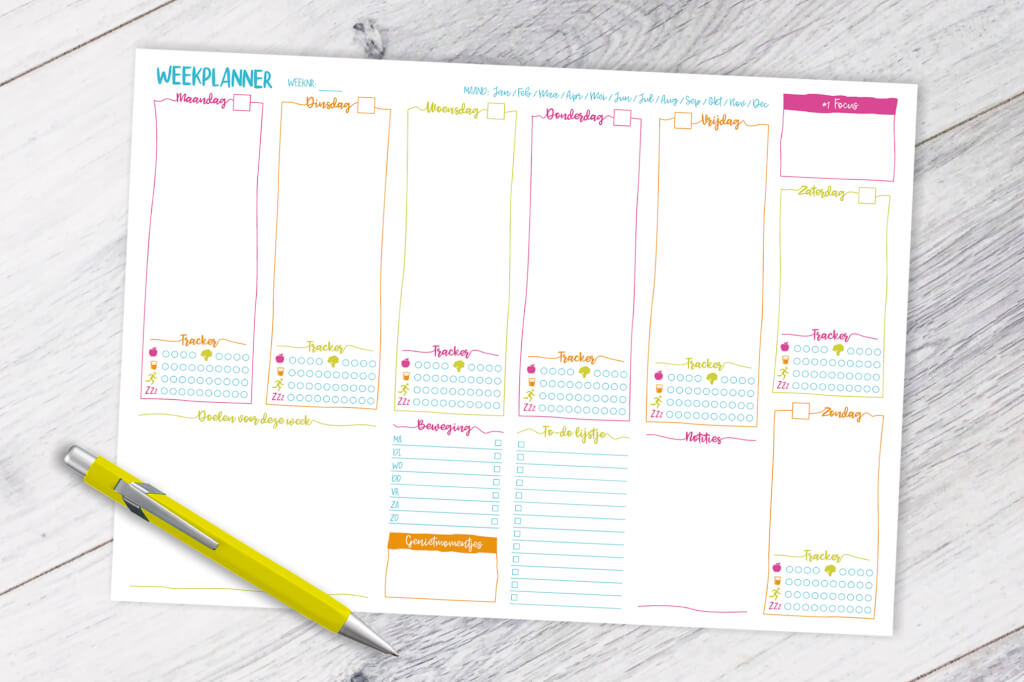 WEEKPLANNER
WEEKNR:
MAAND: Jan / Feb / Maa / Apr / Mei / Jun / Jul / Aug / Sep / Okt / Nov / Dec
Maandag
Dinsdag
Woensdag
Donderdag
Vrijdag
#1 Focus
Zaterdag
Tracker
ZZz
Tracker
ZZz
Tracker
ZZz
Tracker
ZZz
Tracker
ZZz
Tracker
ZZz
Doelen voor deze week
Beweging
MA
DI
WO
DO
VR
ZA
ZO
Genietmomentjes
To-do lijstje
Notities
Zondag
Tracker
ZZz